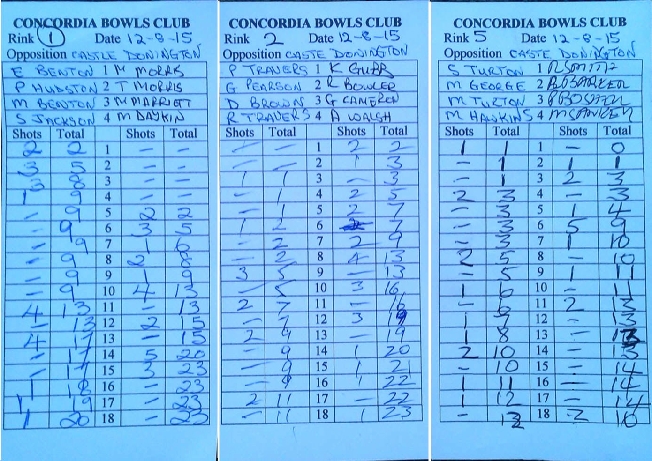 CONCORDIA BOWLS CLUB
Rink 1 Date 12-8-15
Opposition CASTLE DONINGTON
E BENTON 1 M MORRIS
P HUDSTON 2 T MORRIS
M BENTON 3 M MARRIOTT
S JACKSON 4 M DAYKIN
Shots Total Shots Total
2 2 1 - -
3 5 2 - -
3 8 3 - -
1 9 4 - -
- 9 5 2 2
- 9 6 3 5
- 9 7 1 6
- 9 8 2 8
- 9 9 1 9
- 9 10 4 13
4 13 11 - 13
- 13 12 2 15
4 17 13 - 15
- 17 14 5 20
- 17 15 3 23
1 18 16 - 23
1 19 17 - 23
1 20 18 - 23
CONCORDIA BOWLS CLUB
Rink 2 Date 12-8-15
Opposition CASTE DONINGTON
P TRAVERS 1 K
G PEARSON 2 R BOWLER
D BROWN 3 G CAMERON
R TRAVERS 4 A WALSH
Shots Total Shots Total
- - 1 2 2
- - 2 1 3
1 1 3 - 3
- 1 4 2 5
- 1 5 2 7
1 2 6 7
- 2 7 2 9
- 2 8 4 13
3 5 9 - 13
- 5 10 3 16
2 7 11 - 16
- 7 12 3 19
2 9 13 - 19
- 9 14 1 20
- 9 15 1 21
- 9 16 1 22
2 11 17 - 22
- 11 18 1 23
CONCORDIA BOWLS CLUB
Rink 5 Date 12-8-15
Opposition CASTE DONINGTON
S TURTON 1 R SMITH
M GEORGE 2
M TURTON 3
M HAWKINS 4
Shots Total Shots Total
1 1 1 - 0
- 1 2 1 1
- 1 3 2 3
2 3 4 - 3
- 3 5 1 4
- 3 6 5 9
- 3 7 1 10
2 5 8 - 10
- 5 9 1 11
1 6 10 - 11
- 6 11 2 13
1 12 - 13
1 8 13 - 13
2 10 14 - 13
- 10 15 - 14
1 11 16 - 14
1 12 17 - 14
- 12 18 2 16